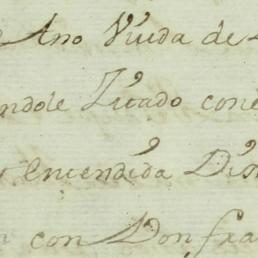 Ano Viuda de
endole Zitado con
encendida Dis
con Don fra